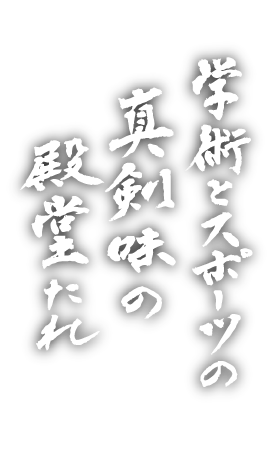 学術とスポーツの
真剣味の
殿堂たれ